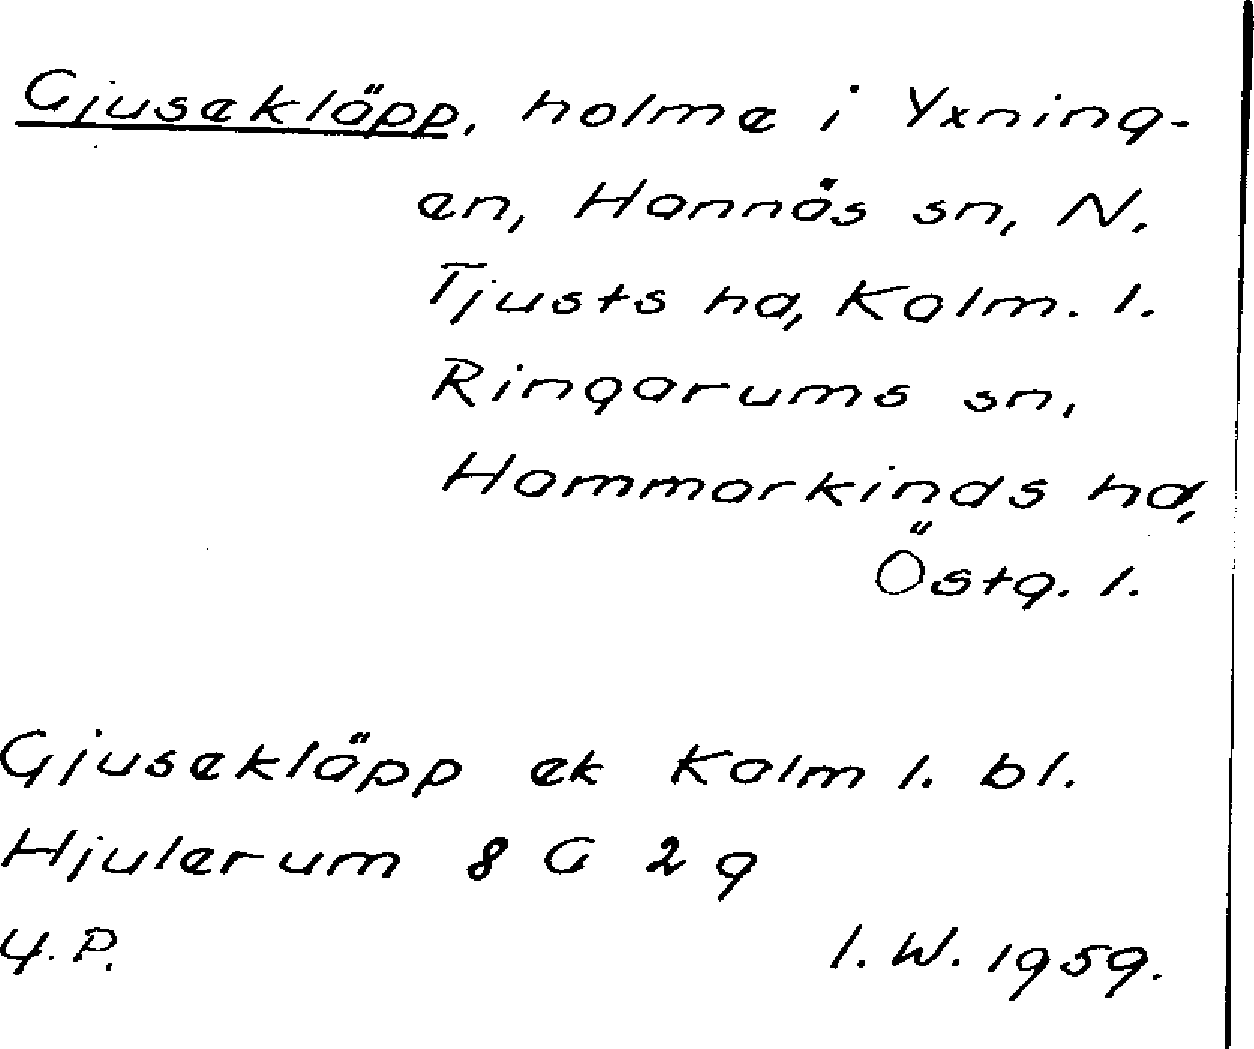 Gjusekläpp, holme i Yxning-
en, Hannäs sn, N.
Tjusts hd, Kalm. l.
Ringarums sn,
Hammarkinds hd,
Östg. l.
Gjusekläpp ek Kalm l. bl.
Hjulerum 8 G 2 g
U.P. I.W. 1959.